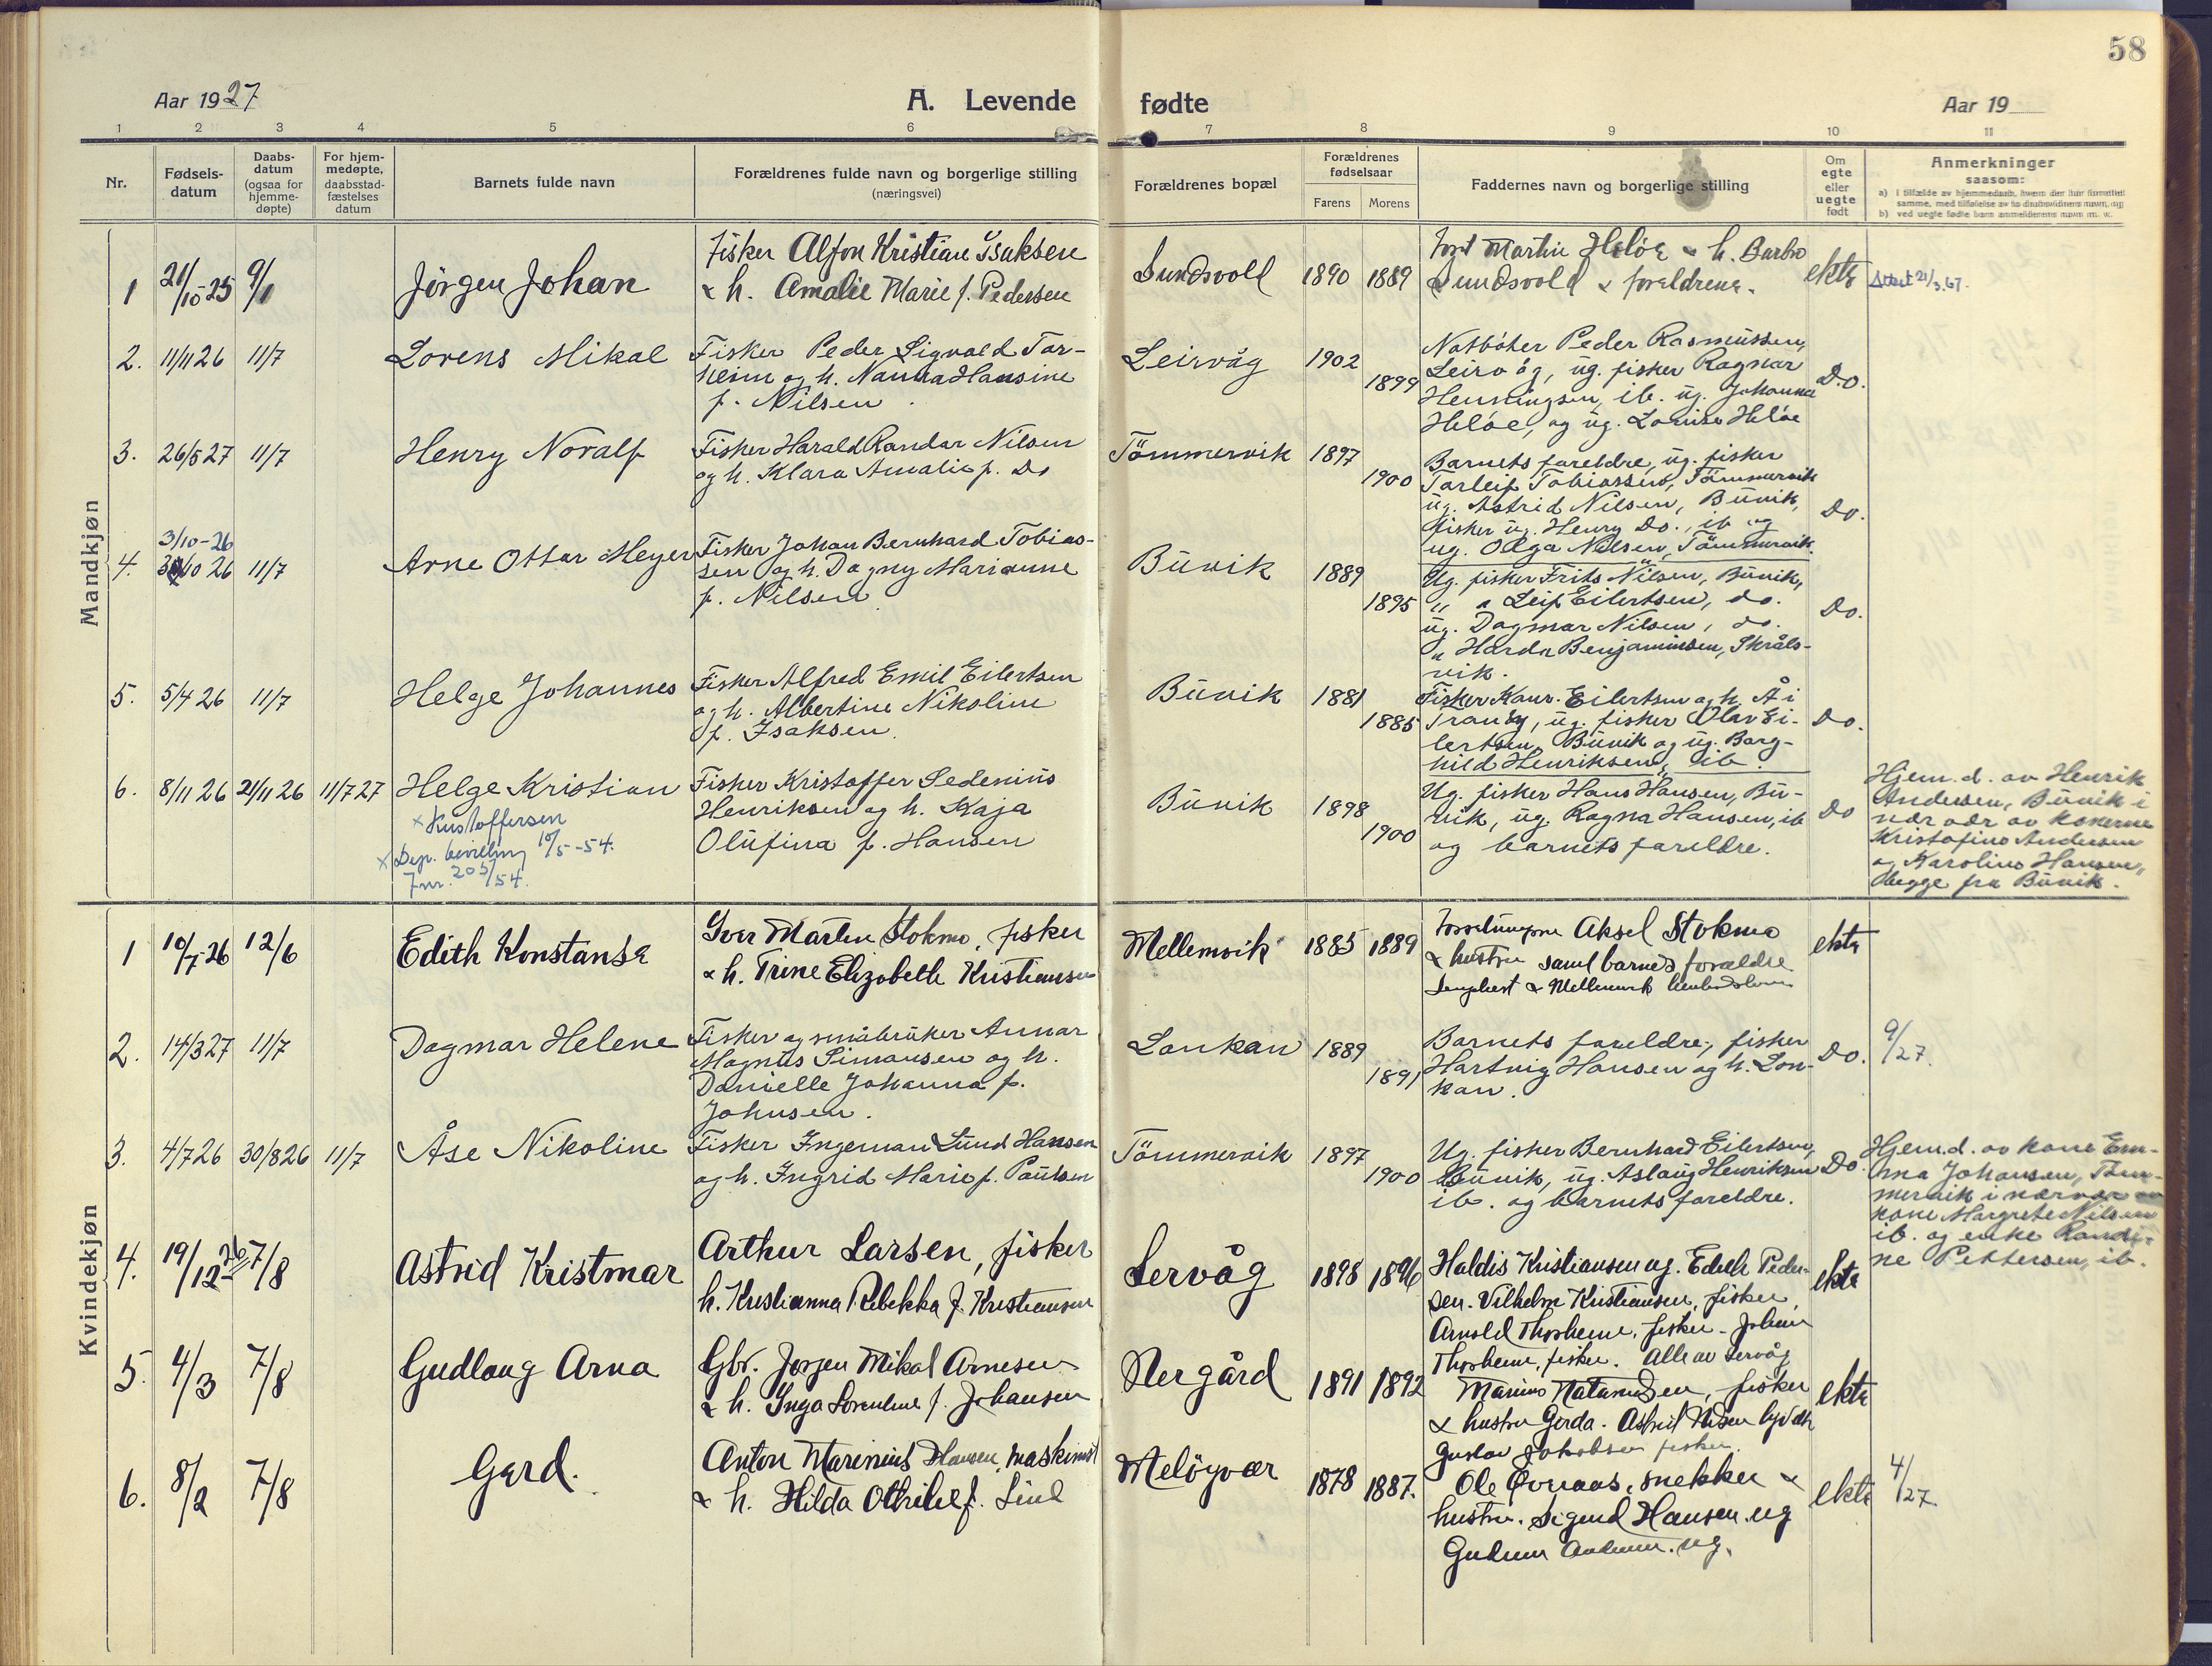 58
Aar 1927 A. Levende fødte Aar 19
1 2 3 4 5 6 7 8 9 10 11
Nr.
Fødsels-
datum
Daabs-
datum
(ogsaa for
hjemme-
døpte)
For hjem-
medøpte,
daabsstad-
fæstelses
datum
Barnets fulde navn
Forældrenes fulde navn og borgerlige stilling
(næringsvei)
Forældrenes bopæl
Forældrenes
fødselsaar
Farens Morens
Faddernes navn og borgerlige stilling
Om
egte
eller
uegte
født
Anmerkninger
saasom:
a) i tilfælde av hjemmedaab, hvem der har forrettet
samme, med tilføielse av to daabsvidners navn, og
b) ved uegte fødte barn anmelderens navn m. v.
Mandkjøn
1 21/10-25 9/1 Jörgen Johan
Fisker Alfon Kristian Isaksen
& h. Amalie Marie f. Pedersen
Sundsvold 1890 1889
Martin Heløe & h. Barbro
Sundsvold & foreldrene.
ekte
Attest 21/3.67.
2. 11/11 26 11/7 Lorens Mikal
Fisker Peder Sigvald Tor-
heim og h. Nanna Hansine
f. Nilsen.
Leirvåg 1902 1899
Notbøter Peder Rasmussen,
Leirvåg, ug. fisker Ragnar
Henningsen, ib. ug. Johanna
Heløe, og ug. Lovise Heløe
Do.
3. 26/5 27 11/7 Henry Noralf
Fisker Harald Randar Nilsen
og h. Klara Amalie f. Do
Tömmervik 1897 1900
Barnets foreldre, ug. fisker
Torleif Tobiassen, Tömmervik
ug. Astrid Nilsen, Buvik,
fisker ug. Henry Do., ib og
ug. Olga Nilsen, Tömmervik.
Do.
3/10-26
4. 10 26 11/7 Arne Ottar Meyer
Fisker Johan Bernhard Tobias-
sen og h. Dagny Marianne
f. Nilsen
Buvik 1889 1895
Ug. fisker Frits Nilsen, Buvik,
" " Leif Eilertsen, do.
ug. Dagmar Nilsen, do.
" Benjaminsen, Skråls-
vik.
Do.
5. 5/4 26 11/7 Helge Johannes
Fisker Alfred Emil Eilertsen
og h. Albertine Nikoline
f. Isaksen.
Buvik 1881 1885
Fisker Eilertsen og h. Å i
Tranöy, ug. fisker Olav Ei-
lertsen, Buvik og ug. Borg-
hild Henriksen, ib.
Do.
6. 8/11 26 21/11 26 11/7 27 Helge Kristian
x Kristoffersen
x Dep. bevilling 10/5-54.
Jnr. 205/54.
Fisker Kristoffer Sedenius
Henriksen og h. Kaja
Olufina f. Hansen
Buvik 1898 1900
Ug. fisker Hans Hansen, Bu-
vik, ug. Ragna Hansen, ib
og barnets foreldre.
Do
Hjem.d. av Henrik
Andersen, Buvik i
nærvær av konerne
Kristofine Andersen
og Karoline Hansen,
begge fra Buvik.
Kvindekjøn
1 10/7-26 12/6 Edith Konstanse
Iver Martin Stokmo, fisker
& h. Trine Elizabeth Kristiansen
Mellemvik 1885 1889
Aksel Stokmo
& hustru samt barnets forældre
& Mellemvik
ekte
2. 14/3 27 11/7 Dagmar Helene
Fisker og småbruker Annar
Magnus Simonsen og h.
Danielle Johanna f.
Johnsen.
Lonkan 1889 1891
Barnets foreldre, fisker
Hartvig Hansen og h. Lon-
kan.
Do.
9/27.
3. 4/7 26 30/8 26 11/7 Åse Nikoline
Fisker Ingeman Lund Hansen
og h. Ingrid Marie f. Paulsen
Tömmervik 1897 1900
Ug. fisker Bernhard Eilertsen,
Buvik, ug. Aslaug Henriksen
ib. og barnets foreldre.
Do.
Hjem.d. av kone Em-
ma Johansen, Töm-
mervik i nærvær av
kone Margrete Nilsen
ib. og enke Randi-
ne Pettersen, ib.
4. 19/12-26 7/8 Astrid Kristmar
Arthur Larsen, fisker
h. Kristianna Rebekka f. Kristiansen
Servåg 1898 1896
Haldis Kristiansen ug. Edith Peder-
sen. Vilhelm Kristiansen, fisker,
Arnold Thorheim, fisker - Johan
Thorheim, fisker. Alle av Servåg
ekte
5. 4/3 7/8 Gudlaug Arna
Gbr. Jørgen Mikal Arnesen
& h. Inga Lorentine f. Johansen
Nergård 1891 1892
Marius Natanielsen, fisker
& hustru Gerda. Astrid Nilsen
Gustav Jakobsen fisker.
ekte
6. 8/2 7/8 Gerd.
Anton Marinius Hansen, maskinist
& h. Hilda Othilie f. Lind
Meløyvær 1878 1887.
Ole Øvraas, snekker &
hustru. Sigurd Hansen ug
Gudrun Andersen. ug.
ekte
4/27.